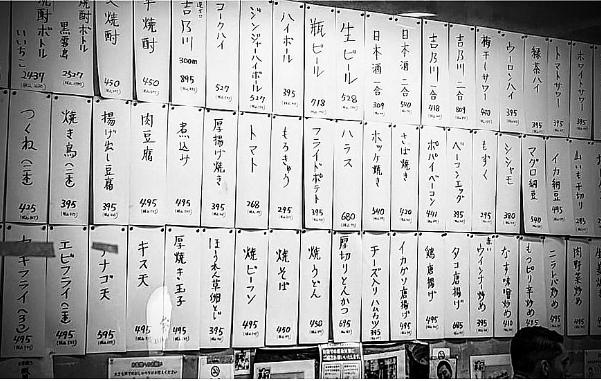 焼酎ボトル いいちこ 2437
焼酎ボトル 黒霧島 2527
焼酎 450
芋焼酎 450
吉乃川 300ml 895
コークハイ 527
ジンジャーハイボール 527
ハイボール 395
瓶ビール 718
生ビール 528
日本酒一合 309
日本酒二合 540
吉乃川一合 418
吉乃川二合 809
梅干サワー 440
ウーロンハイ 395
緑茶ハイ 395
トマトハイ 395
トマトサワー 395
つくね(二本) 425
焼き鳥(二本) 395
揚げ出し豆腐 395
肉豆腐 495
煮込み 495
厚揚げ焼き 395
トマト 268
もろきゅう 295
フライドポテト 395
ハラス 680
ホッケ焼き 540
さば焼き 420
ポパイベーコン 441
ベーコンエッグ 395
もずく 295
シシャモ 380
マグロ納豆 540
イカ納豆 495
山いも千切り 295
カキフライ 495
エビフライ 495
アナゴ天 595
キス天 495
厚焼き玉子 495
ほうれん草胡麻どじ 395
焼ビーフン 495
焼そば 450
焼うどん 450
厚切りとんかつ 695
チーズ入りハムカツ 395
イカゲソ唐揚げ 495
鶏唐揚げ 495
タコ唐揚げ 645
赤ウインナ炒め 395
なす味噌炒め 410
もつピリ辛炒め 495
ニラレバ炒め 495
肉野菜炒め 495